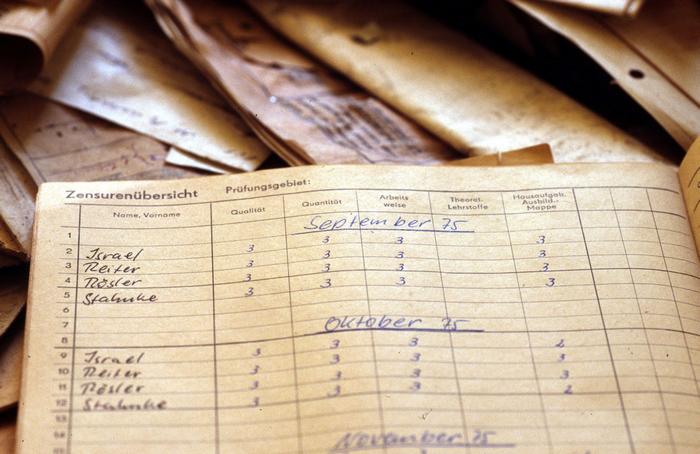 Zensurenübersicht Prüfungsgebiet:
Name, Vorname Qualität Quantität Arbeits weise Theoret. Lehrstoffe Hausaufgab. Ausbild.- Mappe
1 September 75
2 Israel 3 3 3 3
3 Reiter 3 3 3 3
4 Rösler 3 3 3 3
5 Stahnke 3 3 3 3
6
7 Oktober 75
8
9 Israel 3 3 3 2
10 Reiter 3 3 3 3
11 Rösler 3 3 3 3
12 Stahnke 3 3 3 2
13
14 November 75